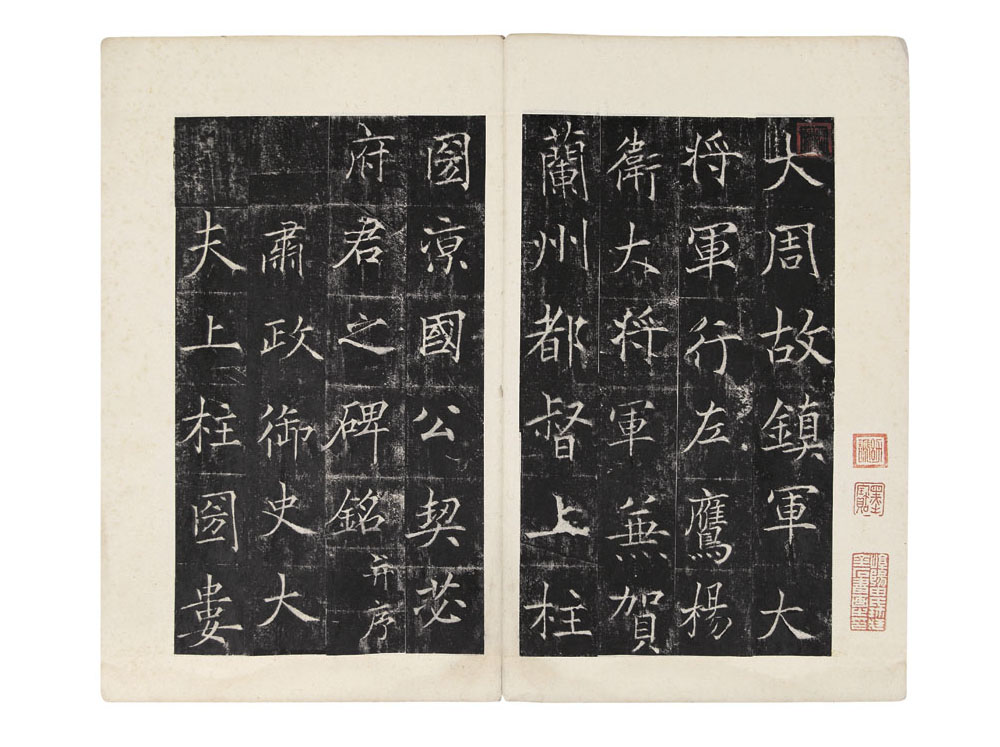 大周故鎮軍大
将軍行左鷹楊
衛大将軍兼賀
蘭州都督上柱
國涼國公契苾
府君之碑銘并序
肅政御史大
夫上柱圀婁